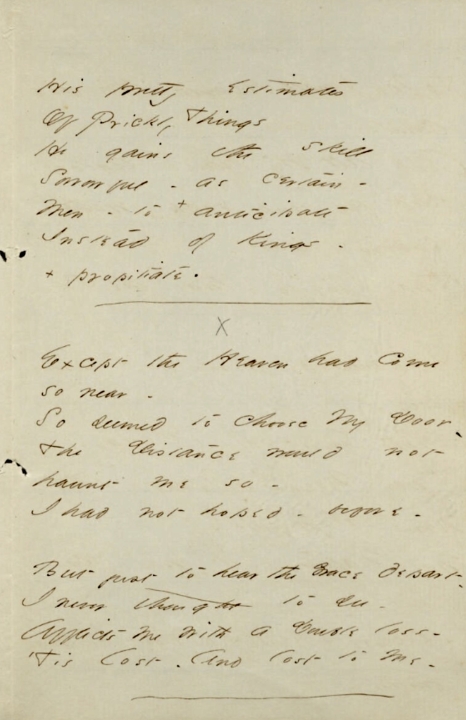 His pretty estimates
Of Prickly Things
He gains the skill
Sorrowful - as certain -
Men - to + anticipate
Instead of Kings -
+ propitiate.
X
Except the Heaven had come
so near -
So seemed to choose My Door
The Distance would not
haunt me so -
I had not hoped - before -
But just to hear the Grace depart -
I never thought to see -
Afflicts me with a Double loss -
'Tis lost - And lost to me -